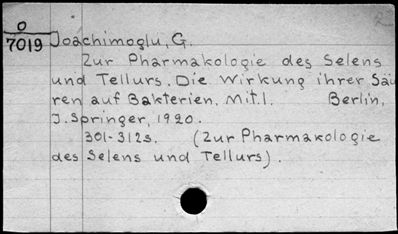 O
7019
Joachimoglu, G.
Zur Pharmakologie des Selens
und Tellurs. Die Wirkung ihrer Säu
ren auf Bakterien. Mit.1. Berlin,
J. Springer, 1920.
301-312s. (Zur Pharmakologie
des Selens und Tellurs).